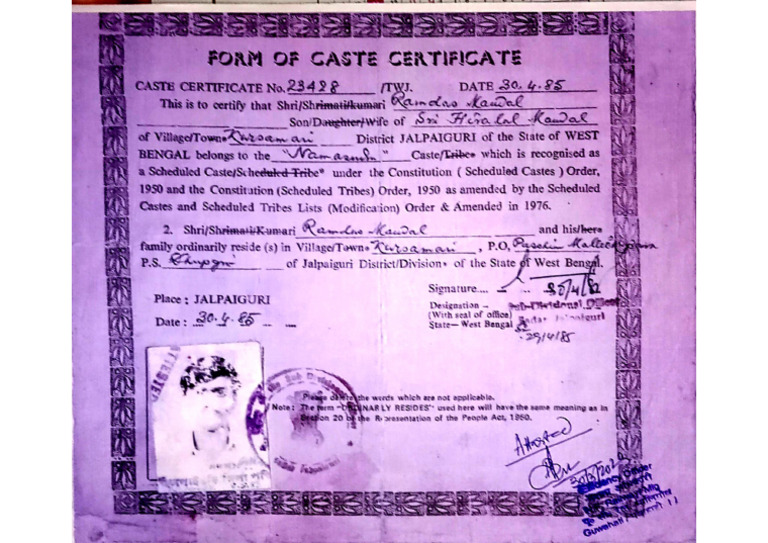 FORM OF CASTE CERTIFICATE
CASTE CERTIFICATE No. 23428 /TWJ. DATE 30.4.85
This is to certify that Shri/Shrimati/kumari Ramdas Mandal
Son/Daughter/Wife of Sri Hiralal Mandal
of Village/Town* Kursamari District JALPAIGURI of the State of WEST
BENGAL belongs to the "Namasudra" Caste/Tribe* which is recognised as
a Scheduled Caste/Scheduled Tribe* under the Constitution ( Scheduled Castes ) Order,
1950 and the Constitution (Scheduled Tribes) Order, 1950 as amended by the Scheduled
Castes and Scheduled Tribes Lists (Modification) Order & Amended in 1976.
2. Shri/Shrimati/Kumari Ramdas Mandal and his/hers
family ordinarily reside (s) in Village/Town* Kursamari , P.O. Paschim
P.S. Dhupguri of Jalpaiguri District/Division* of the State of West Bengal.
Signature....
Place : JALPAIGURI
Designation – Sub-Divisional Officer
(With seal of office) Sadar Jalpaiguri
State—West Bengal
29/4/85
Date : 30.4.85
Please delete the words which are not applicable.
Note : The term "ORDINARLY RESIDES" used here will have the same meaning as in
Section 20 of the Representation of the People Act, 1950.
Attested
Guwahati